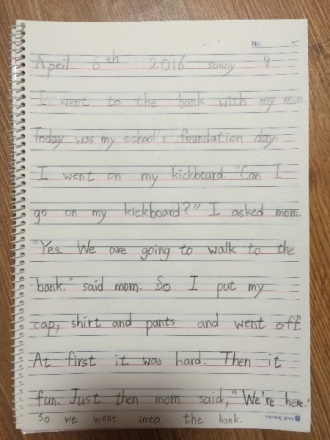 No.
April 6th 2016 sunny 9
I went to the bank with my mom
Today was my school's foundation day
I went on my kickboard. "Can I
go on my kickboard?" I asked mom
"Yes. We are going to walk to the
bank." said mom. So I put my
cap, shirt and pants and went off
At first it was hard. Then it
fun. Just then mom said, "We're here."
So we went into the bank.